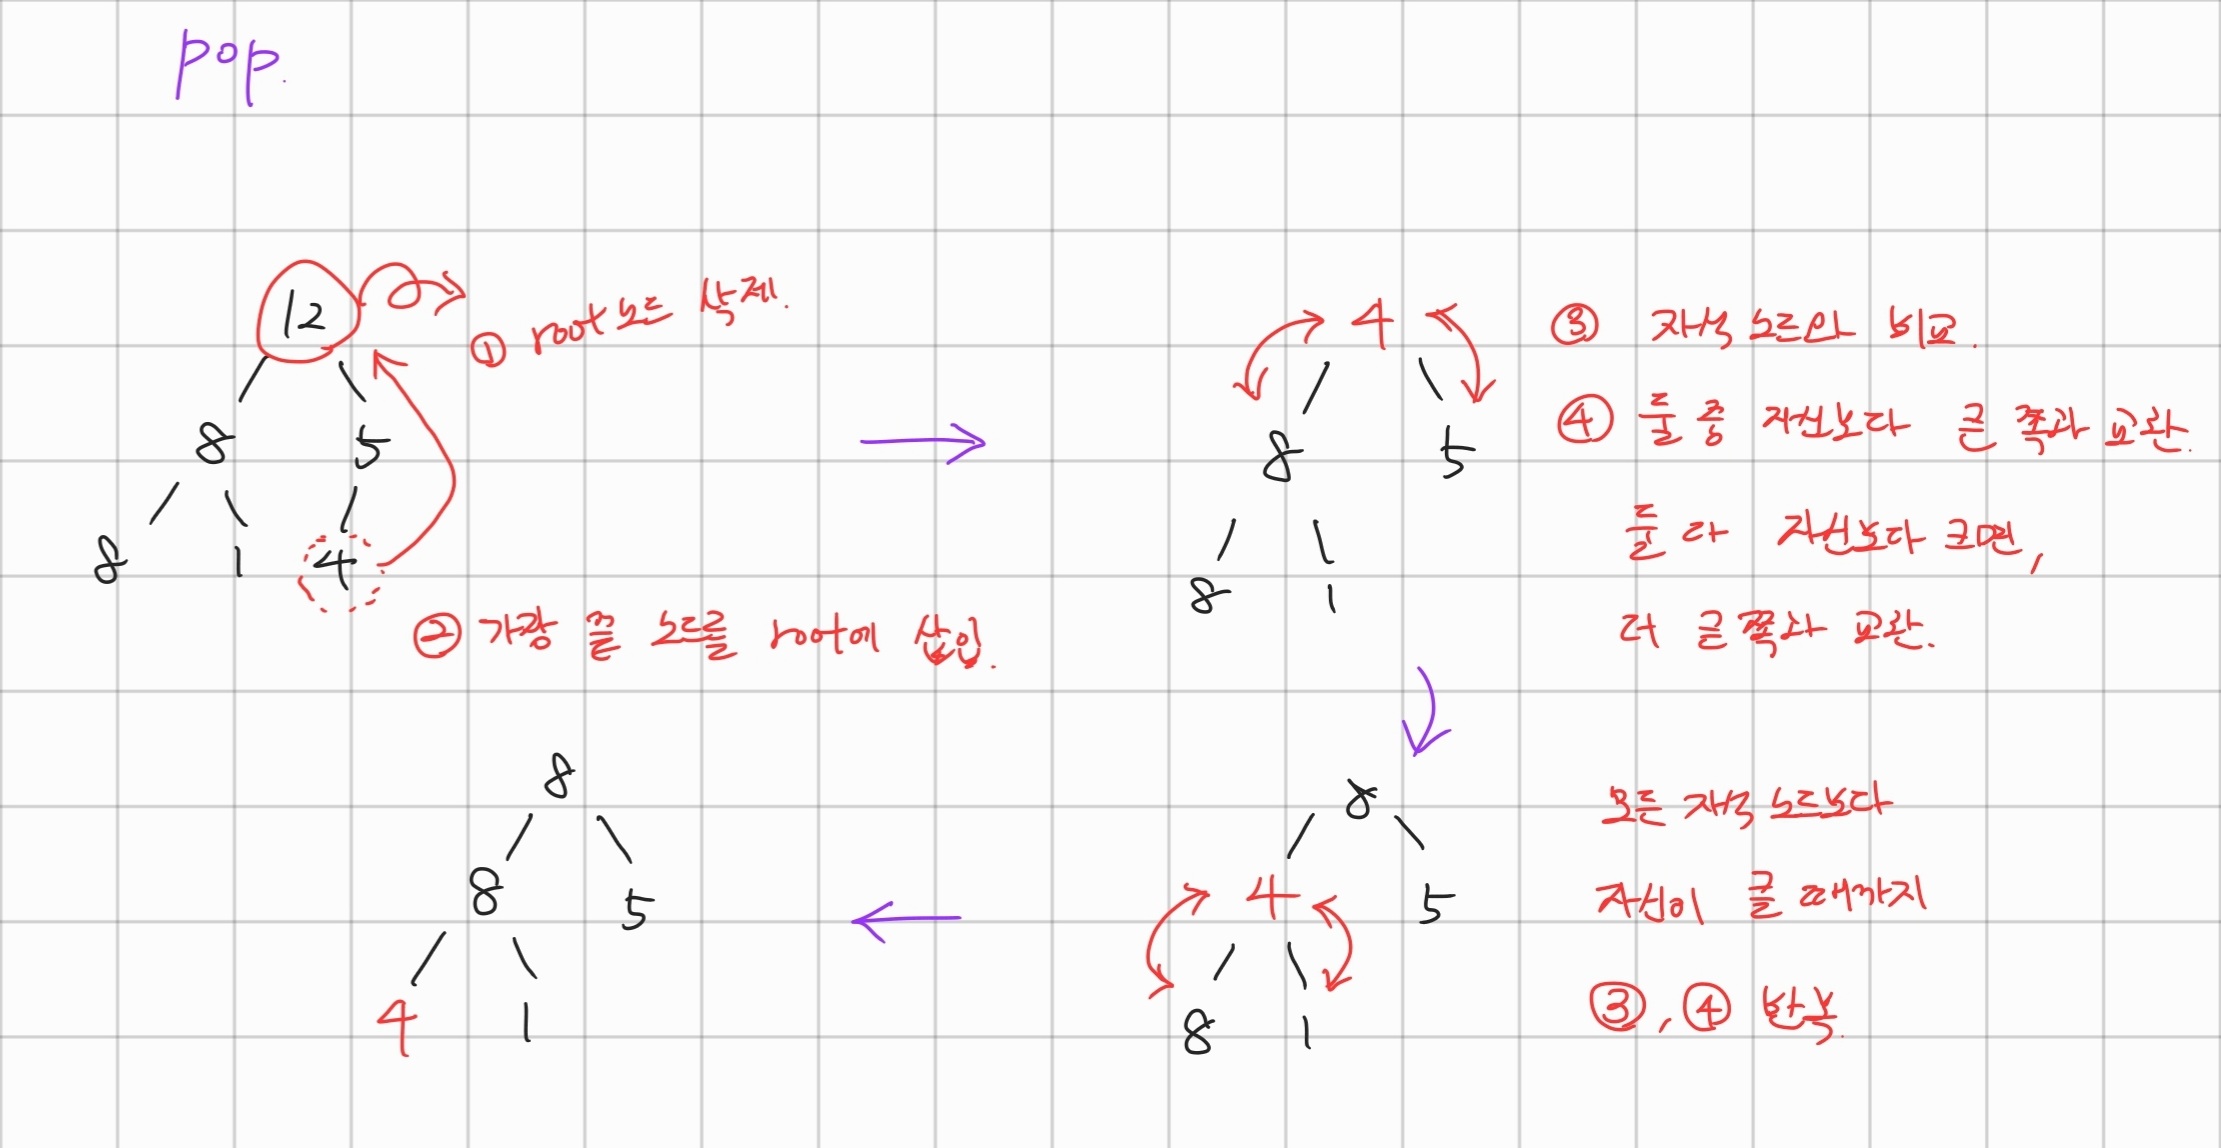 pop.
12
① root노드 삭제.
8 5
8 1 4
② 가장 끝 노드를 root에 삽입.
4
8 5
8 1
③ 자식 노드와 비교.
④ 둘 중 자신보다 큰 쪽과 교환.
둘 다 자신보다 크면,
더 큰 쪽과 교환.
8
4 5
8 1
모든 자식 노드보다
자신이 클 때까지
③, ④ 반복.
8
8 5
4 1